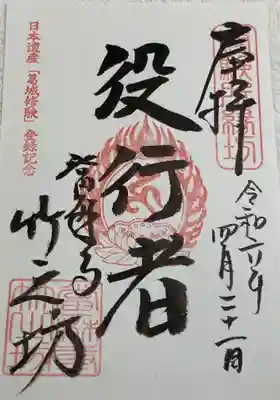 奉拝
令和六年
四月二十一日
役行者
竹之坊
當麻寺
日本遺産「葛城修験」登録記念